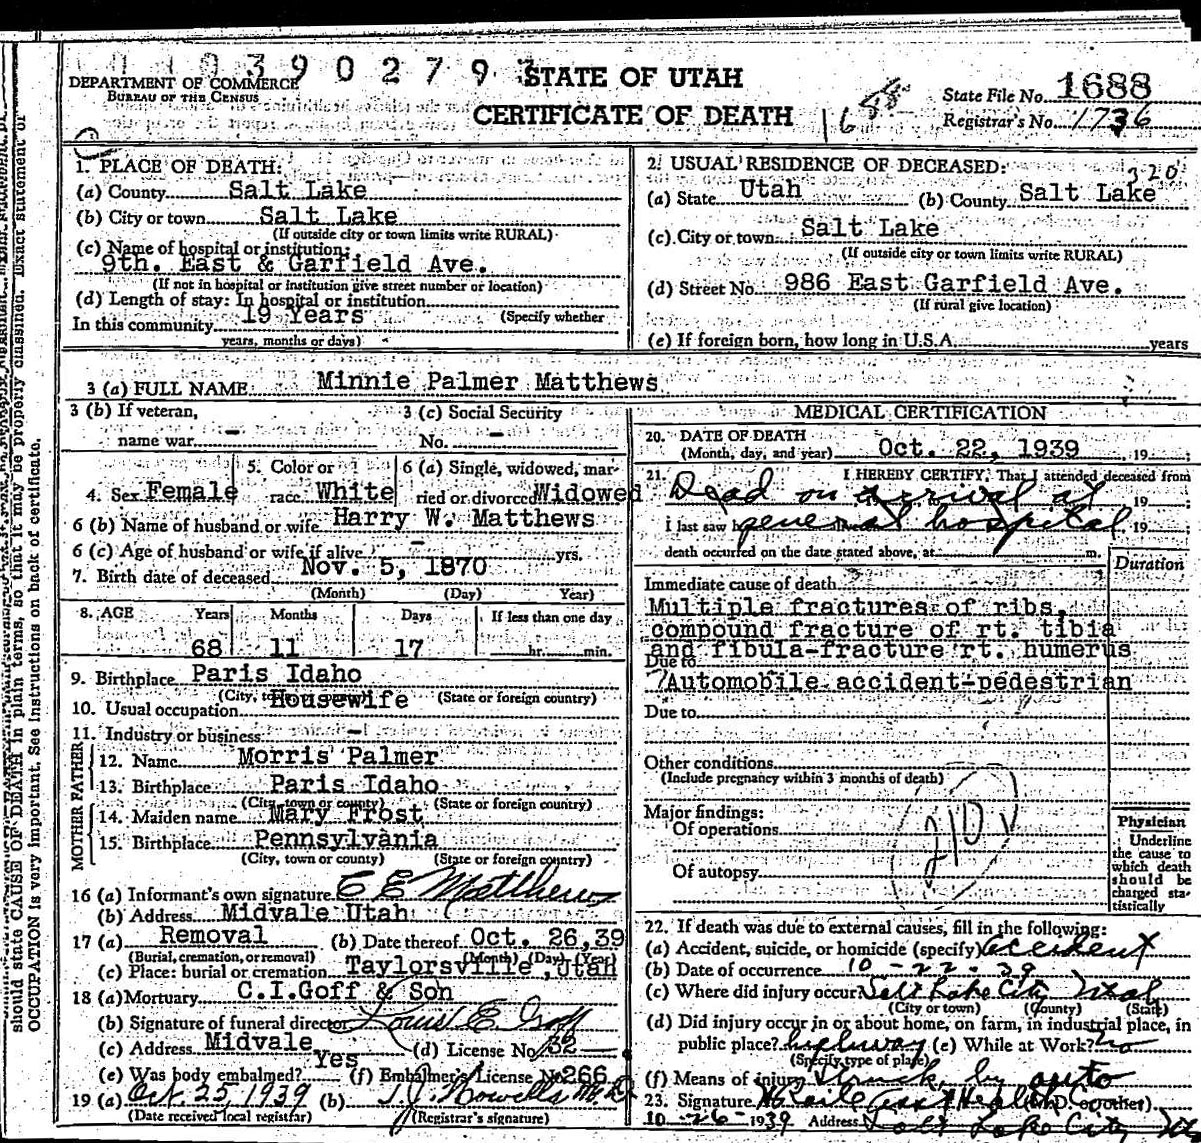 0390279
STATE OF UTAH
CERTIFICATE OF DEATH
DEPARTMENT OF COMMERCE
BUREAU OF THE CENSUS
State File No. 1688
Registrar's No. 1736
1688
1. PLACE OF DEATH:
(a) County Salt Lake
(b) City or town Salt Lake
(If outside city or town limits write RURAL)
(c) Name of hospital or institution:
9th. East & Garfield Ave.
(If not in hospital or institution give street number or location)
(d) Length of stay: In hospital or institution
19 Years (Specify whether
In this community
years, months or days)
2. USUAL RESIDENCE OF DECEASED:
320
(a) State Utah (b) County Salt Lake
(c) City or town Salt Lake
(If outside city or town limits write RURAL)
(d) Street No. 986 East Garfield Ave.
(If rural give location)
(e) If foreign born, how long in U.S.A. years
3 (a) FULL NAME Minnie Palmer Matthews
3 (b) If veteran, 3 (c) Social Security
name war - No. -
4. Sex Female 5. Color or race White 6 (a) Single, widowed, married or divorced Widowed
6 (b) Name of husband or wife Harry W. Matthews
6 (c) Age of husband or wife if alive - yrs.
7. Birth date of deceased Nov. 5, 1870
(Month) (Day) Year)
8. AGE Years Months Days If less than one day
68 11 17 hr. min.
9. Birthplace Paris Idaho
(City, town or county) (State or foreign country)
10. Usual occupation Housewife
11. Industry or business -
FATHER
12. Name Morris Palmer
13. Birthplace Paris Idaho
(City, town or county) (State or foreign country)
MOTHER
14. Maiden name Mary Frost
15. Birthplace Pennsylvania
(City, town or county) (State or foreign country)
16 (a) Informant's own signature C E Matthews
(b) Address Midvale Utah
17 (a) Removal (b) Date thereof Oct. 26, 39
(Burial, cremation, or removal) (Month) (Day) (Year)
(c) Place: burial or cremation Taylorsville, Utah
18 (a) Mortuary C.I.Goff & Son
(b) Signature of funeral director Louis E. Goff
(c) Address Midvale (d) License No. 32
(e) Was body embalmed? Yes (f) Embalmer's License No. 266
19 (a) Oct. 25, 1939 (b) T. J. Howells M.D.
(Date received local registrar) (Registrar's signature)
MEDICAL CERTIFICATION
20. DATE OF DEATH
(Month, day, and year) Oct. 22, 1939, 19
21. I HEREBY CERTIFY, That I attended deceased from
Dead on arrival at 19
I last saw h general hospital 19
death occurred on the date stated above, at m.
Duration
Immediate cause of death
Multiple fractures of ribs,
compound fracture of rt. tibia
and fibula-fracture rt. humerus
Due to
Automobile accident-pedestrian
Due to
Other conditions
(Include pregnancy within 3 months of death)
Major findings:
Of operations
Of autopsy
210
Physician
Underline
the cause to
which death
should be
charged sta-
tistically
22. If death was due to external causes, fill in the following:
(a) Accident, suicide, or homicide (specify) Accident
(b) Date of occurrence 10-22-39
(c) Where did injury occur? Salt Lake City Utah
(City or town) (County) (State)
(d) Did injury occur in or about home, on farm, in industrial place, in
public place? highway (e) While at Work? no
(Specify type of place)
(f) Means of injury Struck by auto
23. Signature (M.D. or other)
10-26-1939 Address Salt Lake City Ut
should state CAUSE OF DEATH in plain terms, so that it may be properly classified. Exact statement of
OCCUPATION is very important. See instructions on back of certificate.